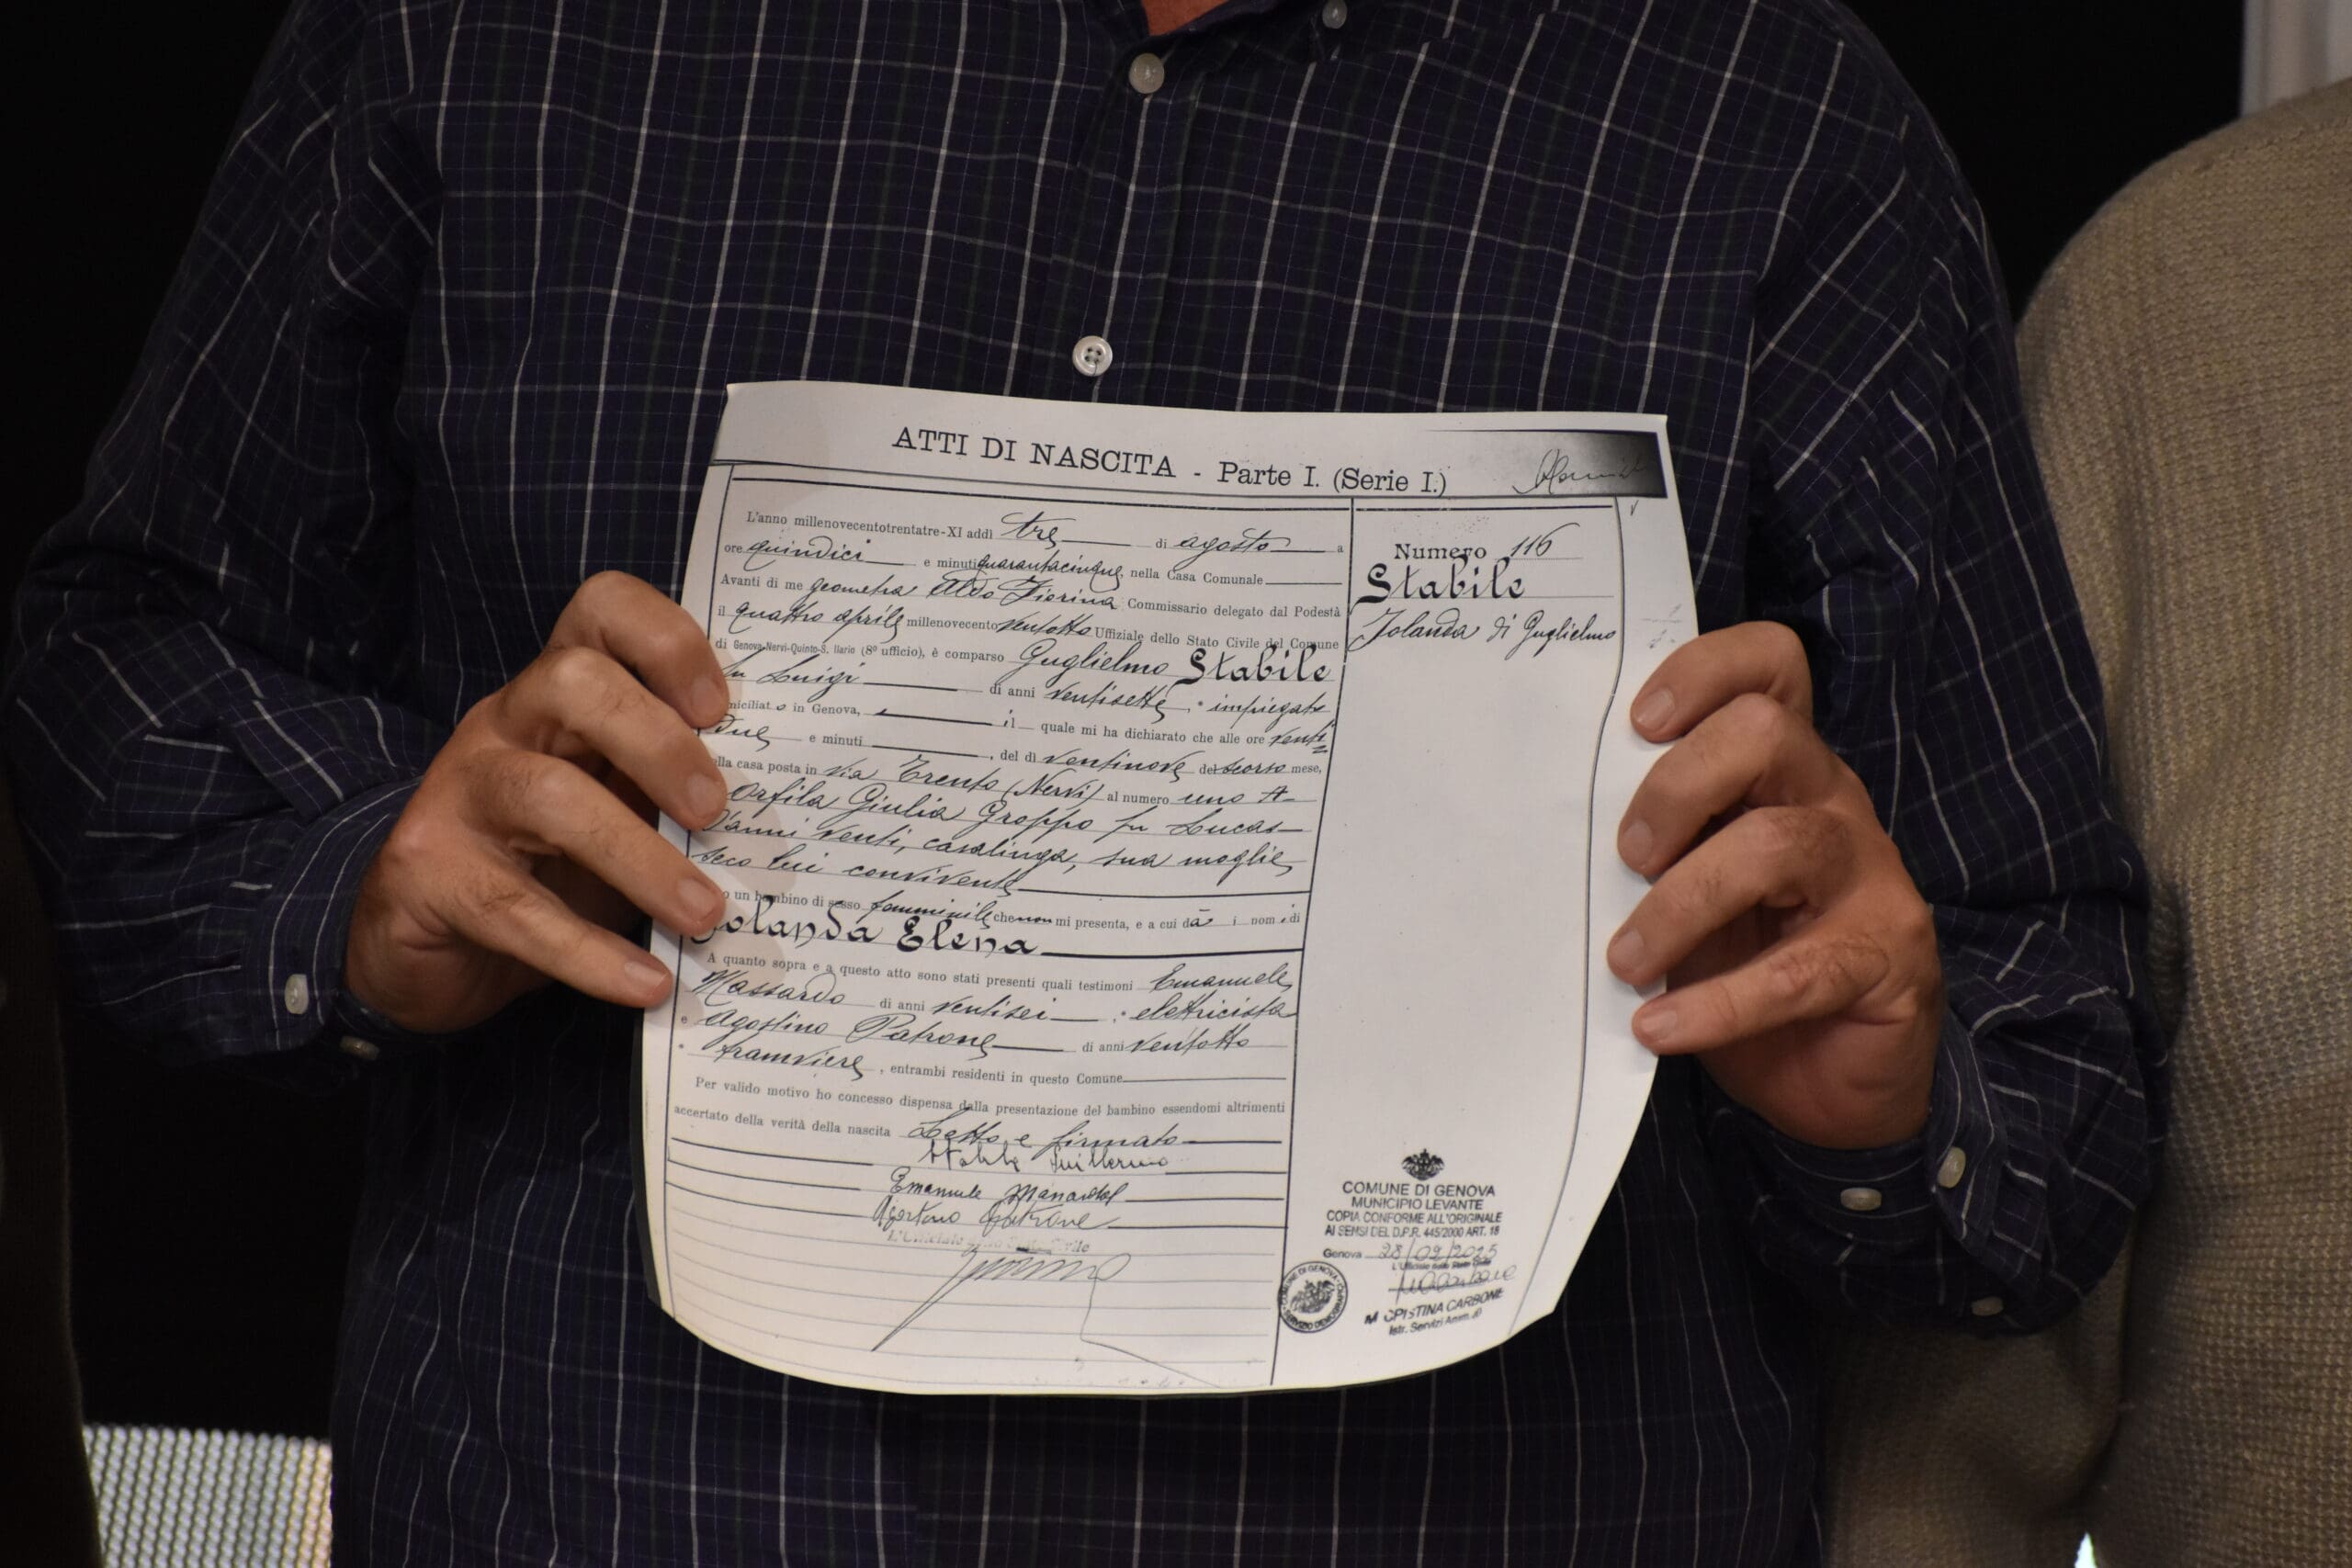 ATTI DI NASCITA - Parte I. (Serie I.)
L'anno millenovecentotrentatre-XI addì tre di agosto a
ore quindici e minuti quarantacinque, nella Casa Comunale
Avanti di me geometra Aldo Fiorina Commissario delegato dal Podestà
il quattro aprile millenovecento ventotto Uffiziale dello Stato Civile del Comune
di Genova-Nervi-Quinto-S. Ilario (8º ufficio), è comparso Guglielmo Stabile
fu Luigi di anni ventisette, impiegato
miciliato in Genova, il quale mi ha dichiarato che alle ore venti
due e minuti , del dì ventinove del scorso mese,
lla casa posta in via Trento (Nervi) al numero uno A
Orfila Giulia Groppo fu Lucas
d'anni venti, casalinga, sua moglie
seco lui convivente
o un bambino di sesso femminile che non mi presenta, e a cui dà i nomi di
Jolanda Elena
A quanto sopra e a questo atto sono stati presenti quali testimoni Emanuele
Massardo di anni ventisei : elettricista
e Agostino Patrone di anni ventotto
tramviere, entrambi residenti in questo Comune
Per valido motivo ho concesso dispensa dalla presentazione del bambino essendomi altrimenti
accertato della verità della nascita Letto e firmato
Stabile Guillermo
Emanuele
Agostino Patrone
L'Ufficiale dello Stato Civile
Numero 116
Stabile
Jolanda di Guglielmo
COMUNE DI GENOVA
MUNICIPIO LEVANTE
COPIA CONFORME ALL'ORIGINALE
AI SENSI DEL D.P.R. 445/2000 ART. 18
Genova 28/02/2025
L'Ufficiale dello Stato Civile
M CRISTINA CARBONE
Istr. Servizi Amm.vi
COMUNE DI GENOVA